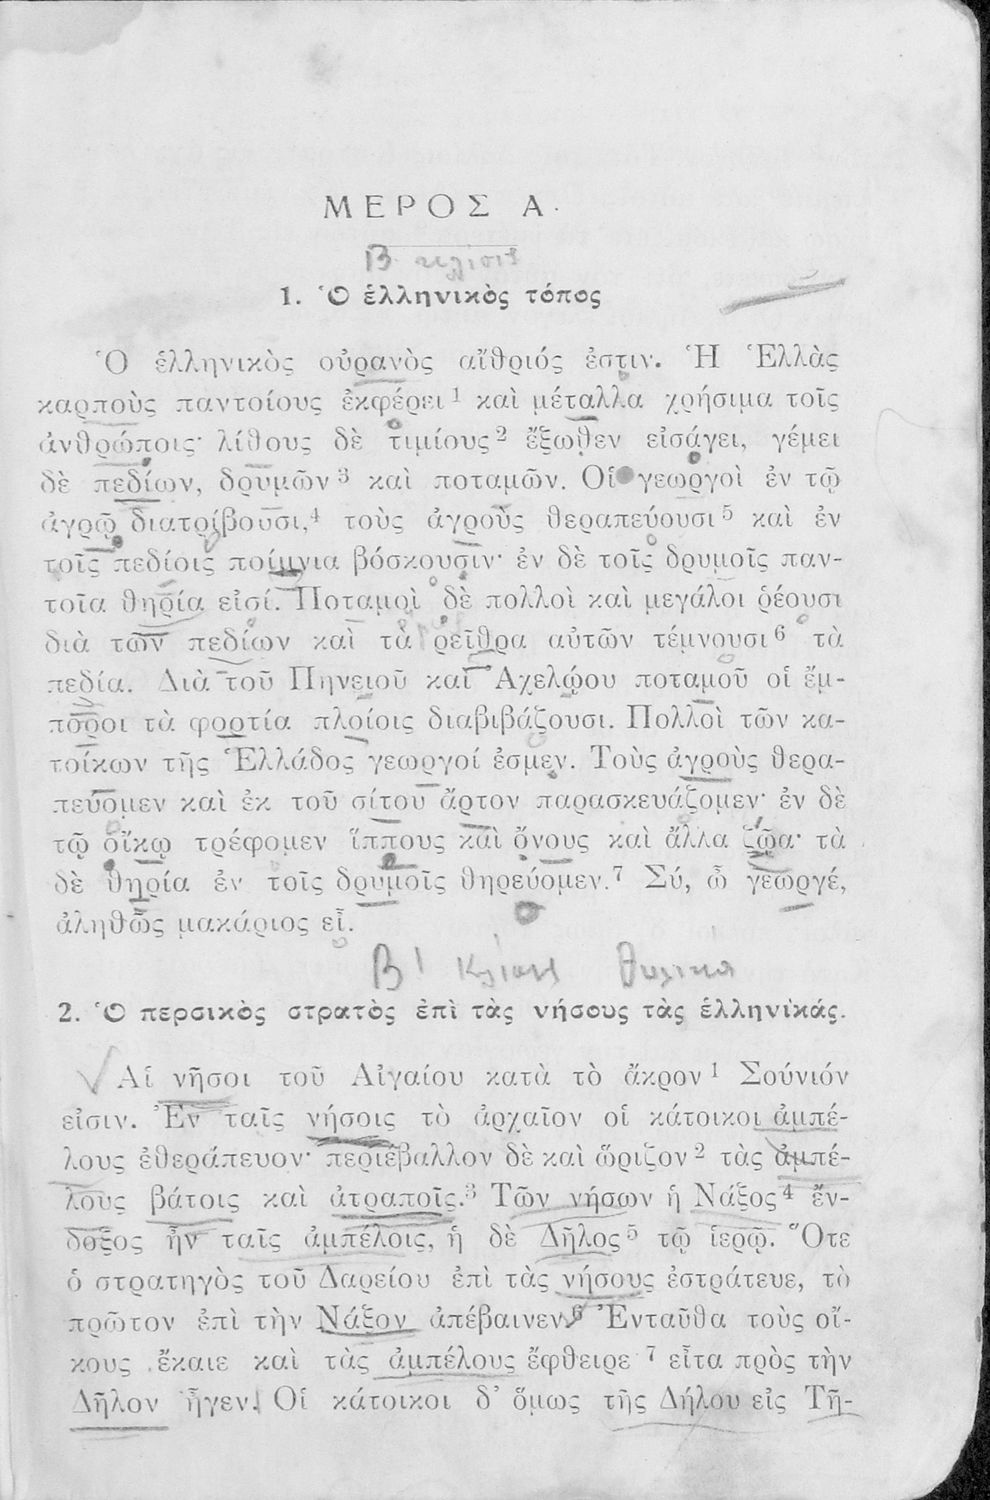 ΜΕΡΟΣ Α.
Β κλίσις
1. Ὁ ἑλληνικὸς τόπος
Ὁ ἑλληνικὸς οὐρανὸς αἴθριός ἐστιν. Ἡ Ἑλλὰς
καρποὺς παντοίους ἐκφέρει 1 καὶ μέταλλα χρήσιμα τοῖς
ἀνθρώποις· λίθους δὲ τιμίους 2 ἔξωθεν εἰσάγει, γέμει
δὲ πεδίων, δρυμῶν 3 καὶ ποταμῶν. Οἱ γεωργοὶ ἐν τῷ
ἀγρῷ διατρίβουσι, 4 τοὺς ἀγροὺς θεραπεύουσι 5 καὶ ἐν
τοῖς πεδίοις ποίμνια βόσκουσιν· ἐν δὲ τοῖς δρυμοῖς παν-
τοῖα θηρία εἰσί. Ποταμοὶ δὲ πολλοὶ καὶ μεγάλοι ῥέουσι
διὰ τῶν πεδίων καὶ τὰ ῥεῖθρα αὐτῶν τέμνουσι 6 τὰ
πεδία. Διὰ τοῦ Πηνειοῦ καὶ Ἀχελῴου ποταμοῦ οἱ ἔμ-
ποροι τὰ φορτία πλοίοις διαβιβάζουσι. Πολλοὶ τῶν κα-
τοίκων τῆς Ἑλλάδος γεωργοί ἐσμεν. Τοὺς ἀγροὺς θερα-
πεύομεν καὶ ἐκ τοῦ σίτου ἄρτον παρασκευάζομεν· ἐν δὲ
τῷ οἴκῳ τρέφομεν ἵππους καὶ ὄνους καὶ ἄλλα ζῷα· τὰ
δὲ θηρία ἐν τοῖς δρυμοῖς θηρεύομεν. 7 Σύ, ὦ γεωργέ,
ἀληθῶς μακάριος εἶ.
Β' Κλίσις θηλικά
2. Ὁ περσικὸς στρατὸς ἐπὶ τὰς νήσους τὰς ἑλληνικάς.
Αἱ νῆσοι τοῦ Αἰγαίου κατὰ τὸ ἄκρον 1 Σούνιόν
εἰσιν. Ἐν ταῖς νήσοις τὸ ἀρχαῖον οἱ κάτοικοι ἀμπέ-
λους ἐθεράπευον· περιέβαλλον δὲ καὶ ὥριζον 2 τὰς ἀμπέ-
λους βάτοις καὶ ἀτραποῖς. 3 Τῶν νήσων ἡ Νάξος 4 ἔν-
δοξος ἦν ταῖς ἀμπέλοις, ἡ δὲ Δῆλος 5 τῷ ἱερῷ. Ὅτε
ὁ στρατηγὸς τοῦ Δαρείου ἐπὶ τὰς νήσους ἐστράτευε, τὸ
πρῶτον ἐπὶ τὴν Νάξον ἀπέβαινεν 6 Ἐνταῦθα τοὺς οἴ-
κους ἔκαιε καὶ τὰς ἀμπέλους ἔφθειρε 7 εἶτα πρὸς τὴν
Δῆλον ἦγεν. Οἱ κάτοικοι δ' ὅμως τῆς Δήλου εἰς Τῆ-